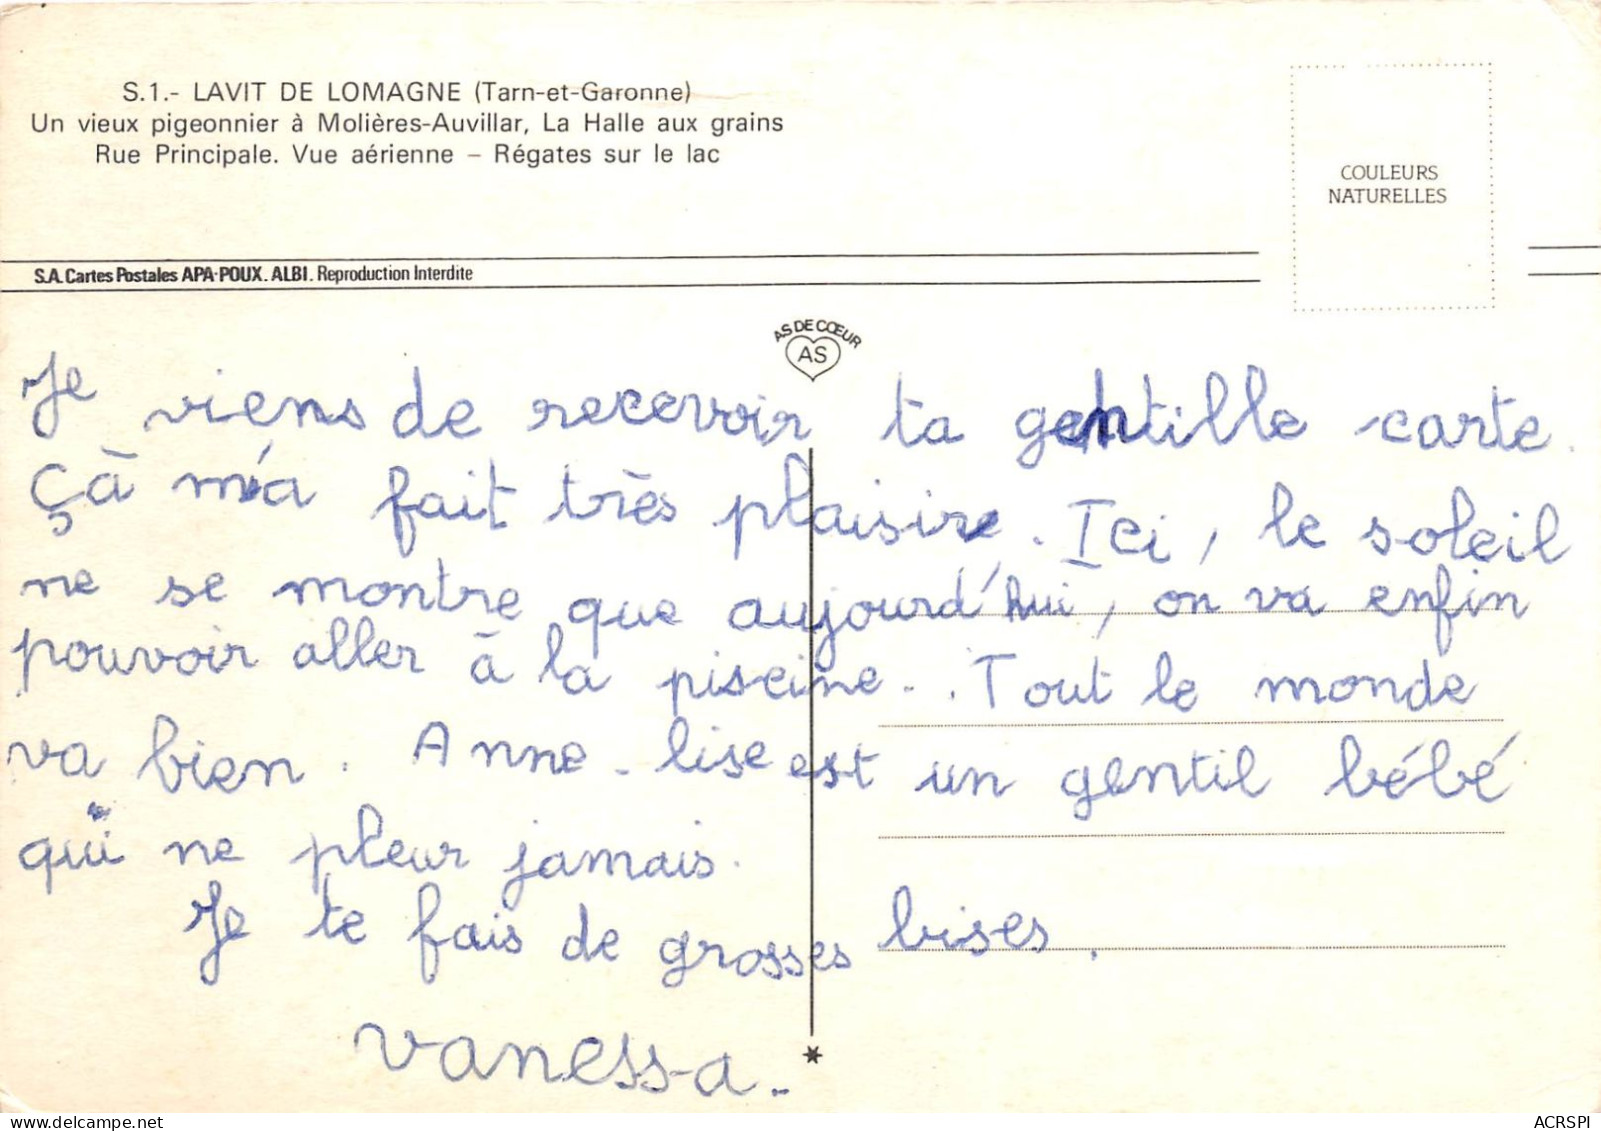 S.1.- LAVIT DE LOMAGNE (Tarn-et-Garonne)
Un vieux pigeonnier à Molières-Auvillar, La Halle aux grains
Rue Principale. Vue aérienne – Régates sur le lac
COULEURS
NATURELLES
S.A. Cartes Postales APA-POUX. ALBI. Reproduction Interdite
AS DE CŒUR
AS
Je viens de recevoir ta gentille carte.
Çà m'a fait très plaisir. Ici, le soleil
ne se montre que aujourd'hui, on va enfin
pouvoir aller à la piscine. . Tout le monde
va bien. Anne-lise est un gentil bébé
qui ne pleur jamais.
Je te fais de grosses bises.
Vanessa.
ACRSPI